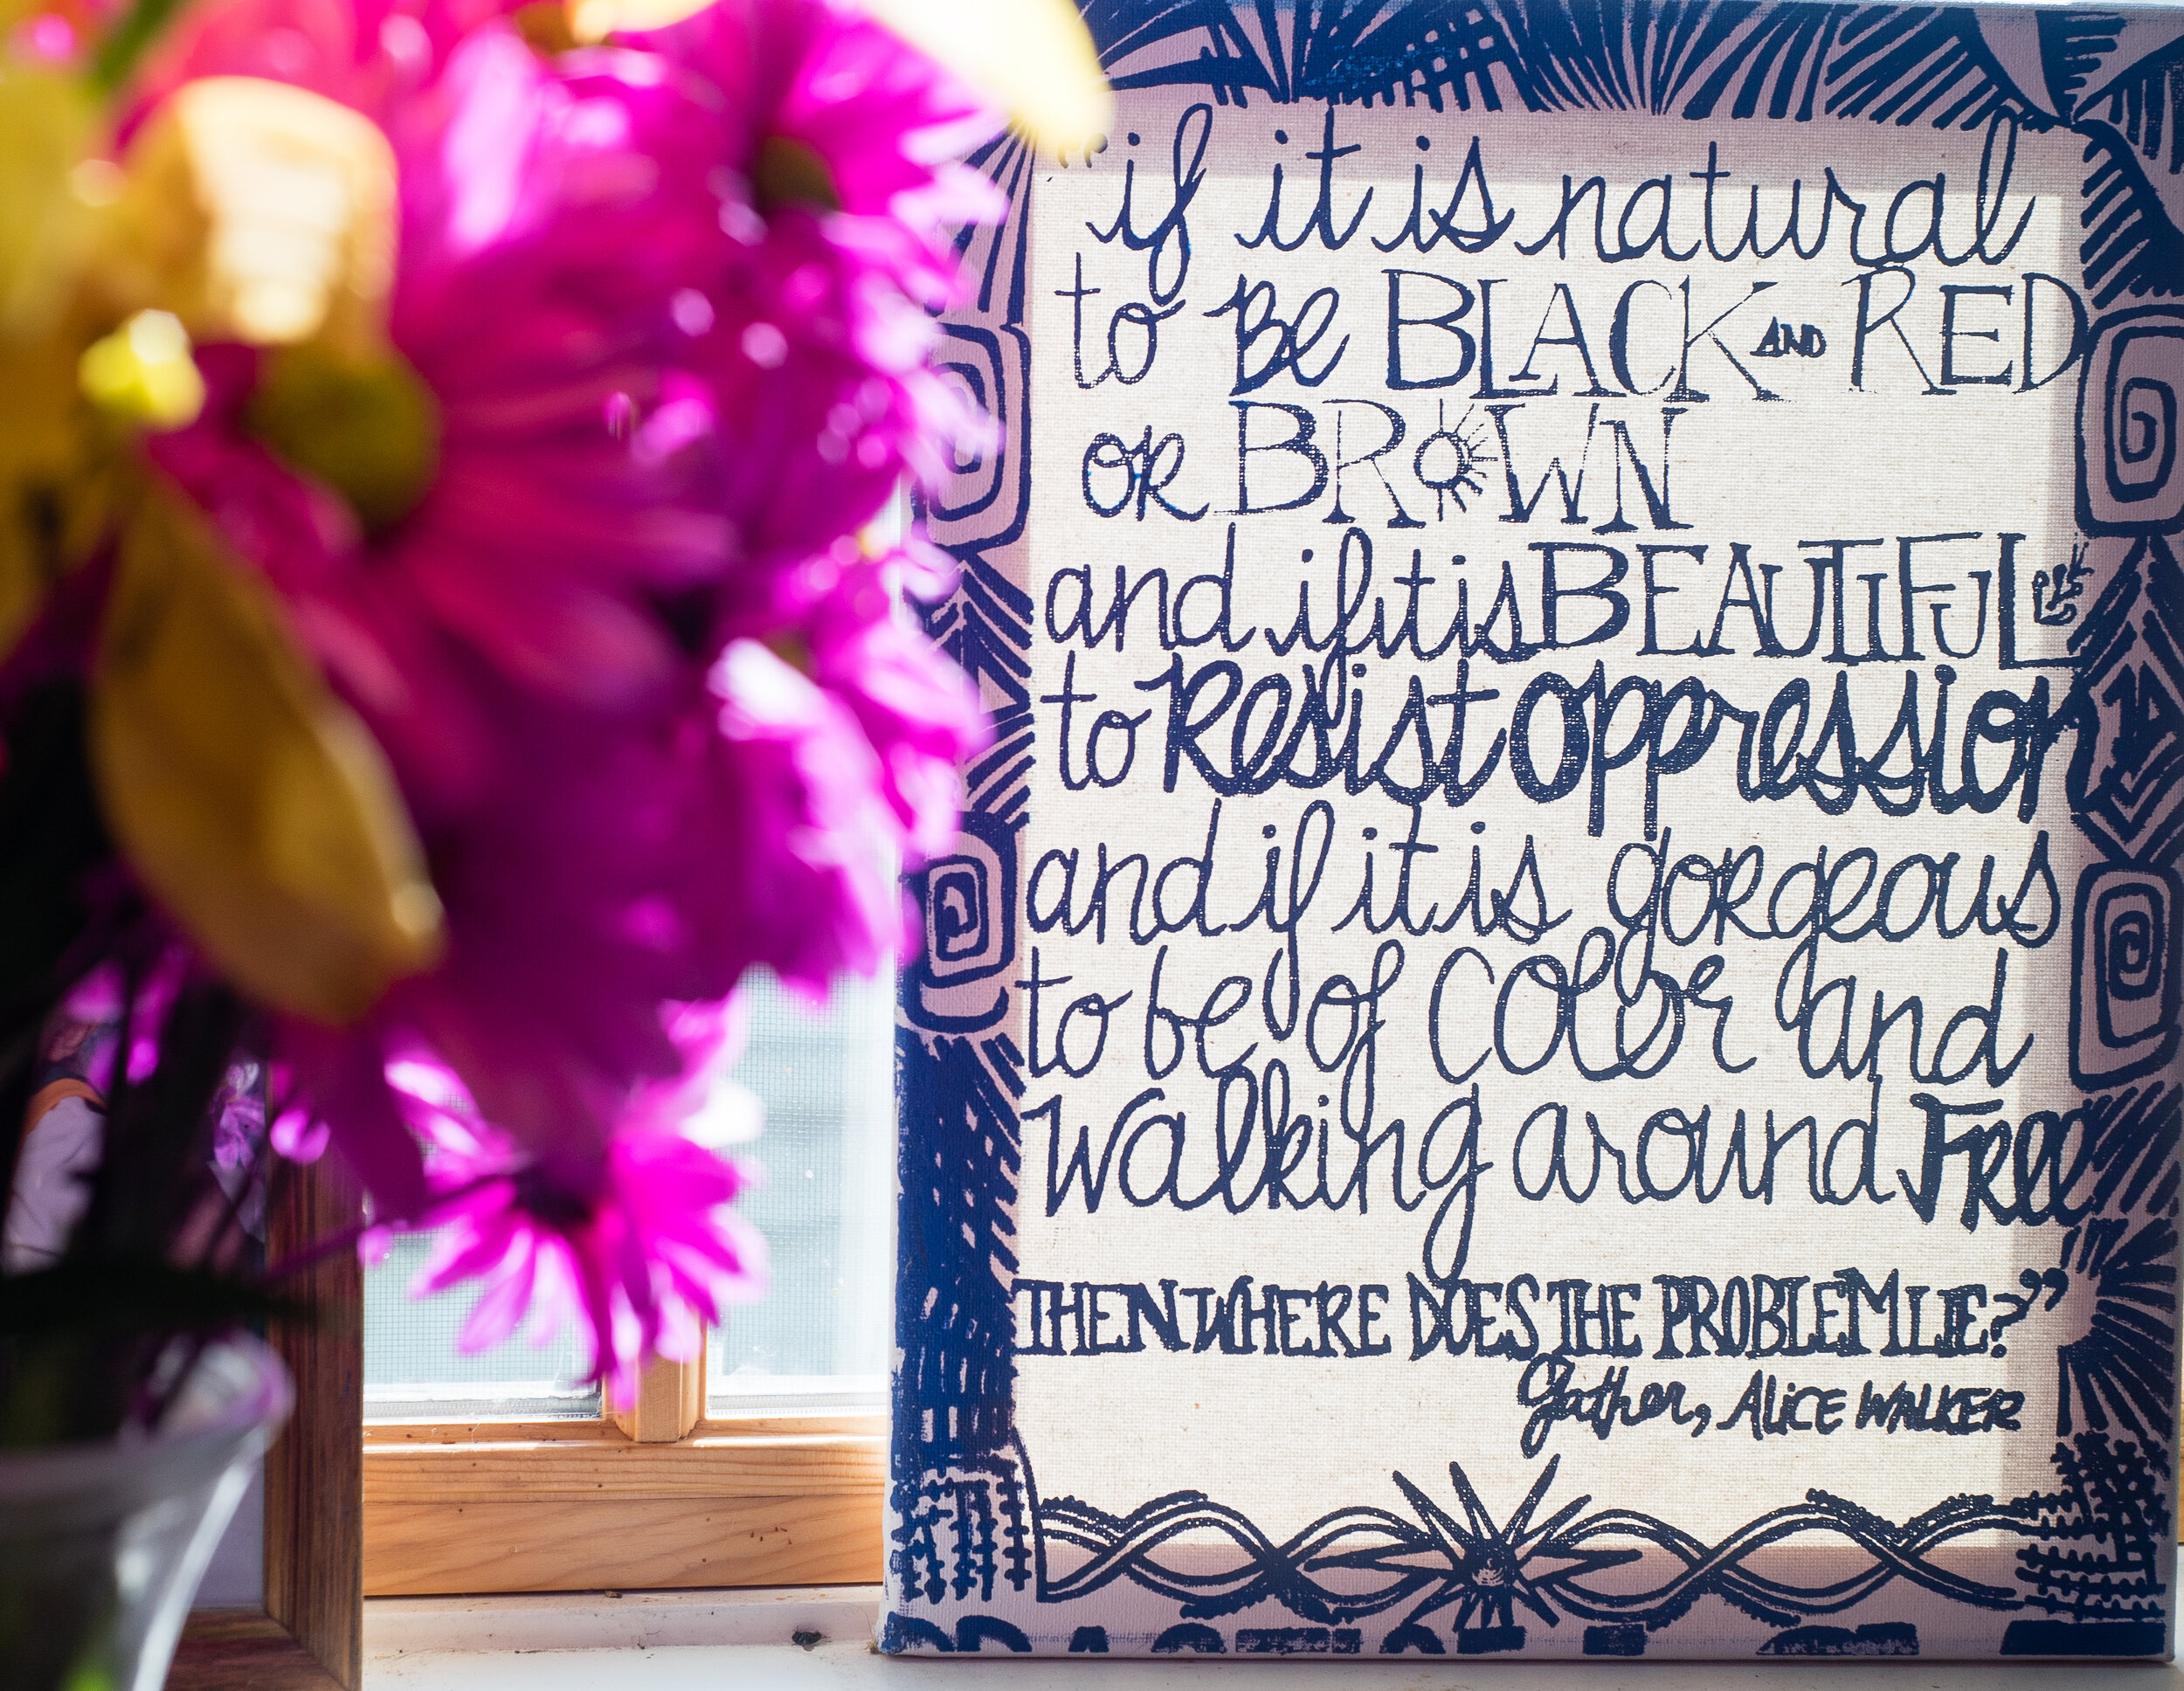 "if it is natural
to Be BLACK AND RED
OR BROWN
and if it is BEAUTIFUL
to Resist Oppression
and if it is gorgeous
to be of COLOR and
Walking around FRee
THEN WHERE DOES THE PROBLEM LIE?"
Gather, ALiCE WALKER